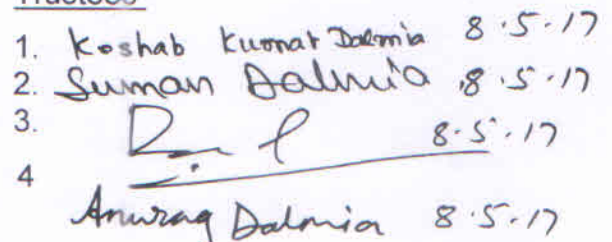 Trustees
1. Keshab Kumar Dalmia 8.5.17
2. Suman Dalmia 8.5.17
3. 8.5.17
4
Anurag Dalmia 8.5.17